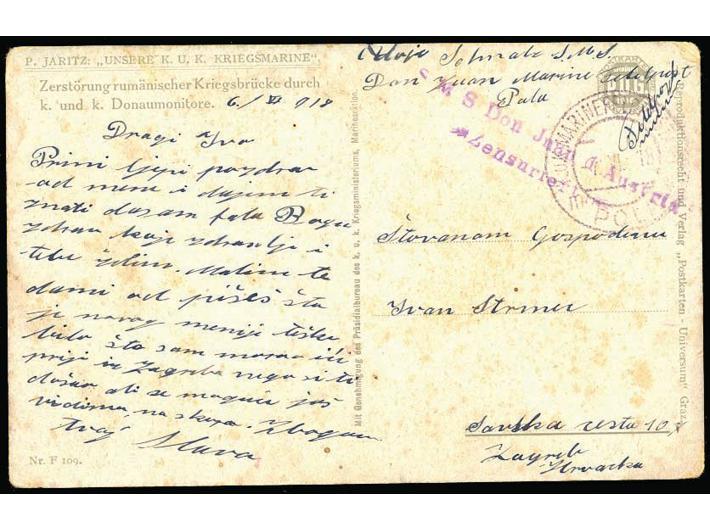 P. JARITZ: „UNSERE K. U. K. KRIEGSMARINE“.
Zerstörung rumänischer Kriegsbrücke durch
k. und k. Donaumonitore.
918
Dragi Ivo
Primi ljepi pozdrav
od mene i dajem ti
znati da sam fala Bogu
zdrav koje zdravlje i
tebe želim. Molim te
dami od pišeš šta
je novog meni je teško
bilo što sam morao ići
prije iz Zagreba nego si ti
došao ali se moguće još
vidimo na skoro. Zbogom
tvoj Slava
Nr. F 109.
Mit Genehmigung des Präsidialbureau des k. u. k. Kriegsministeriums, Marinesektion.
S. M. S.
Don Juan Marine feldpost
Pola
S M S Don Juan d Austria
Zensuriert
POLA
Štovanom Gospodinu
Ivan
Savska cesta 10
Zagreb
Hrvatska
Reproduktionsrecht und Verlag „Postkarten - Universum“ Graz.